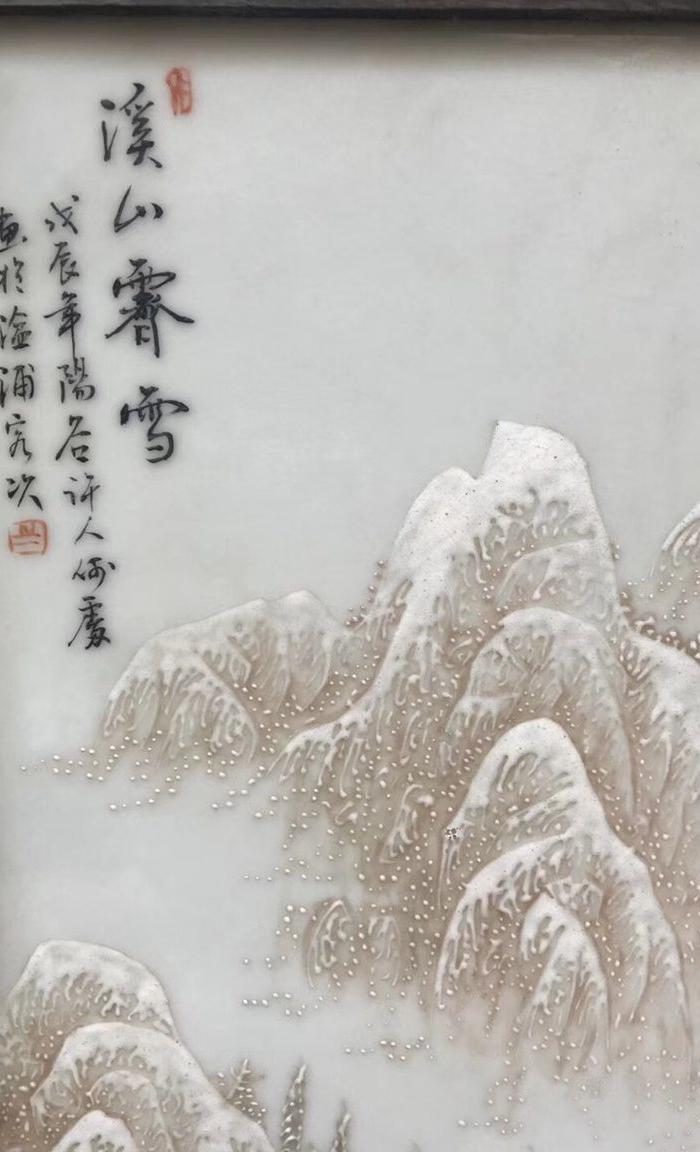 溪山霽雪
戊辰年陽谷許人何處
画於湓浦客次